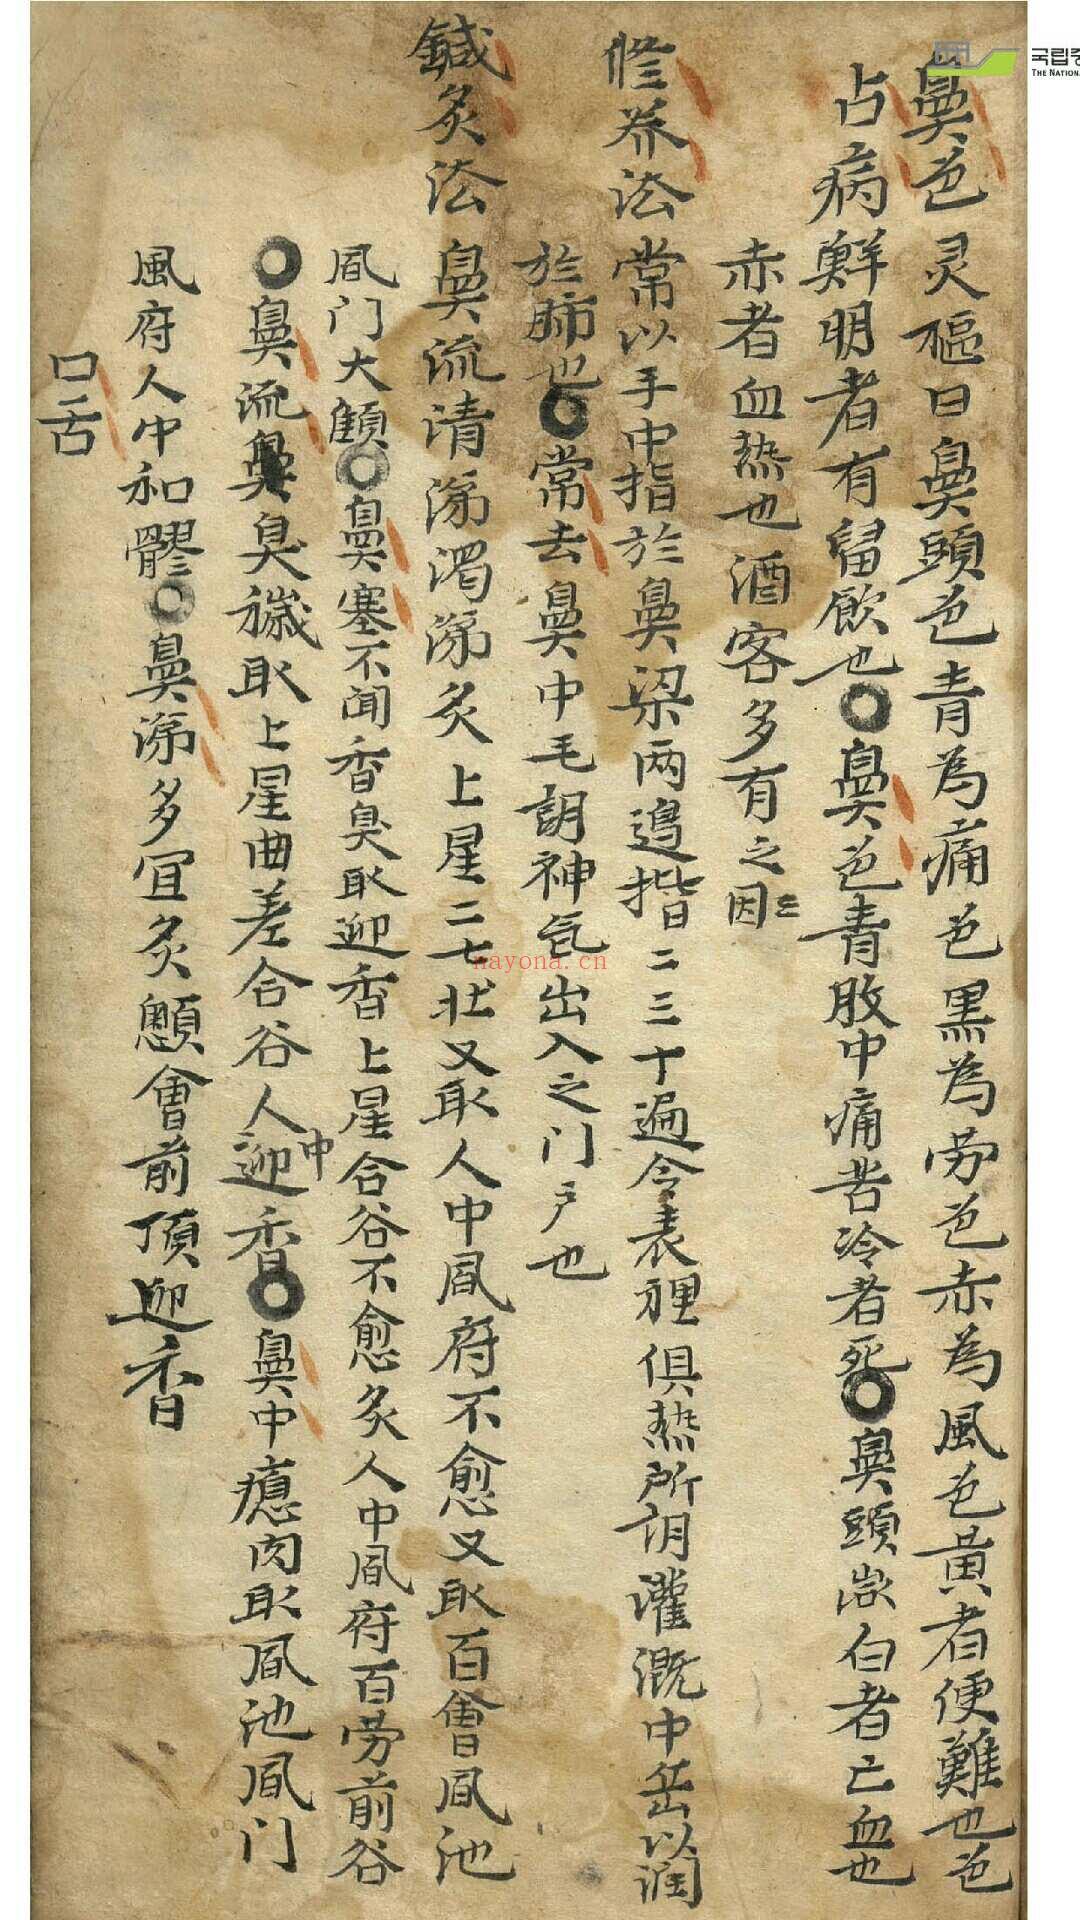 鼻色 灵樞曰鼻頭色青為痛色黑為劳色赤為風色黃者便難也色
占病 鮮明者有留飲也○鼻色青腹中痛苦冷者死○鼻頭微白者亡血也
赤者血热也酒客多有之因〻
修养法 常以手中指於鼻梁两邉揩二三十遍令表裡俱热所谓灌溉中岳以润
於肺也○常去鼻中毛谓神气出入之门户也
鍼灸法 鼻流清涕濁涕灸上星二七壮又取人中風府不愈又取百會風池
風门大顀○鼻塞不闻香臭取迎香上星合谷不愈灸人中風府百劳前谷
○鼻流鼻臭穢取上星曲差合谷人中迎香○鼻中瘜肉取風池風门
風府人中和髎○鼻涕多宜灸顖會前頂迎香
口舌
국립중
THE NATIONA
nayona.cn